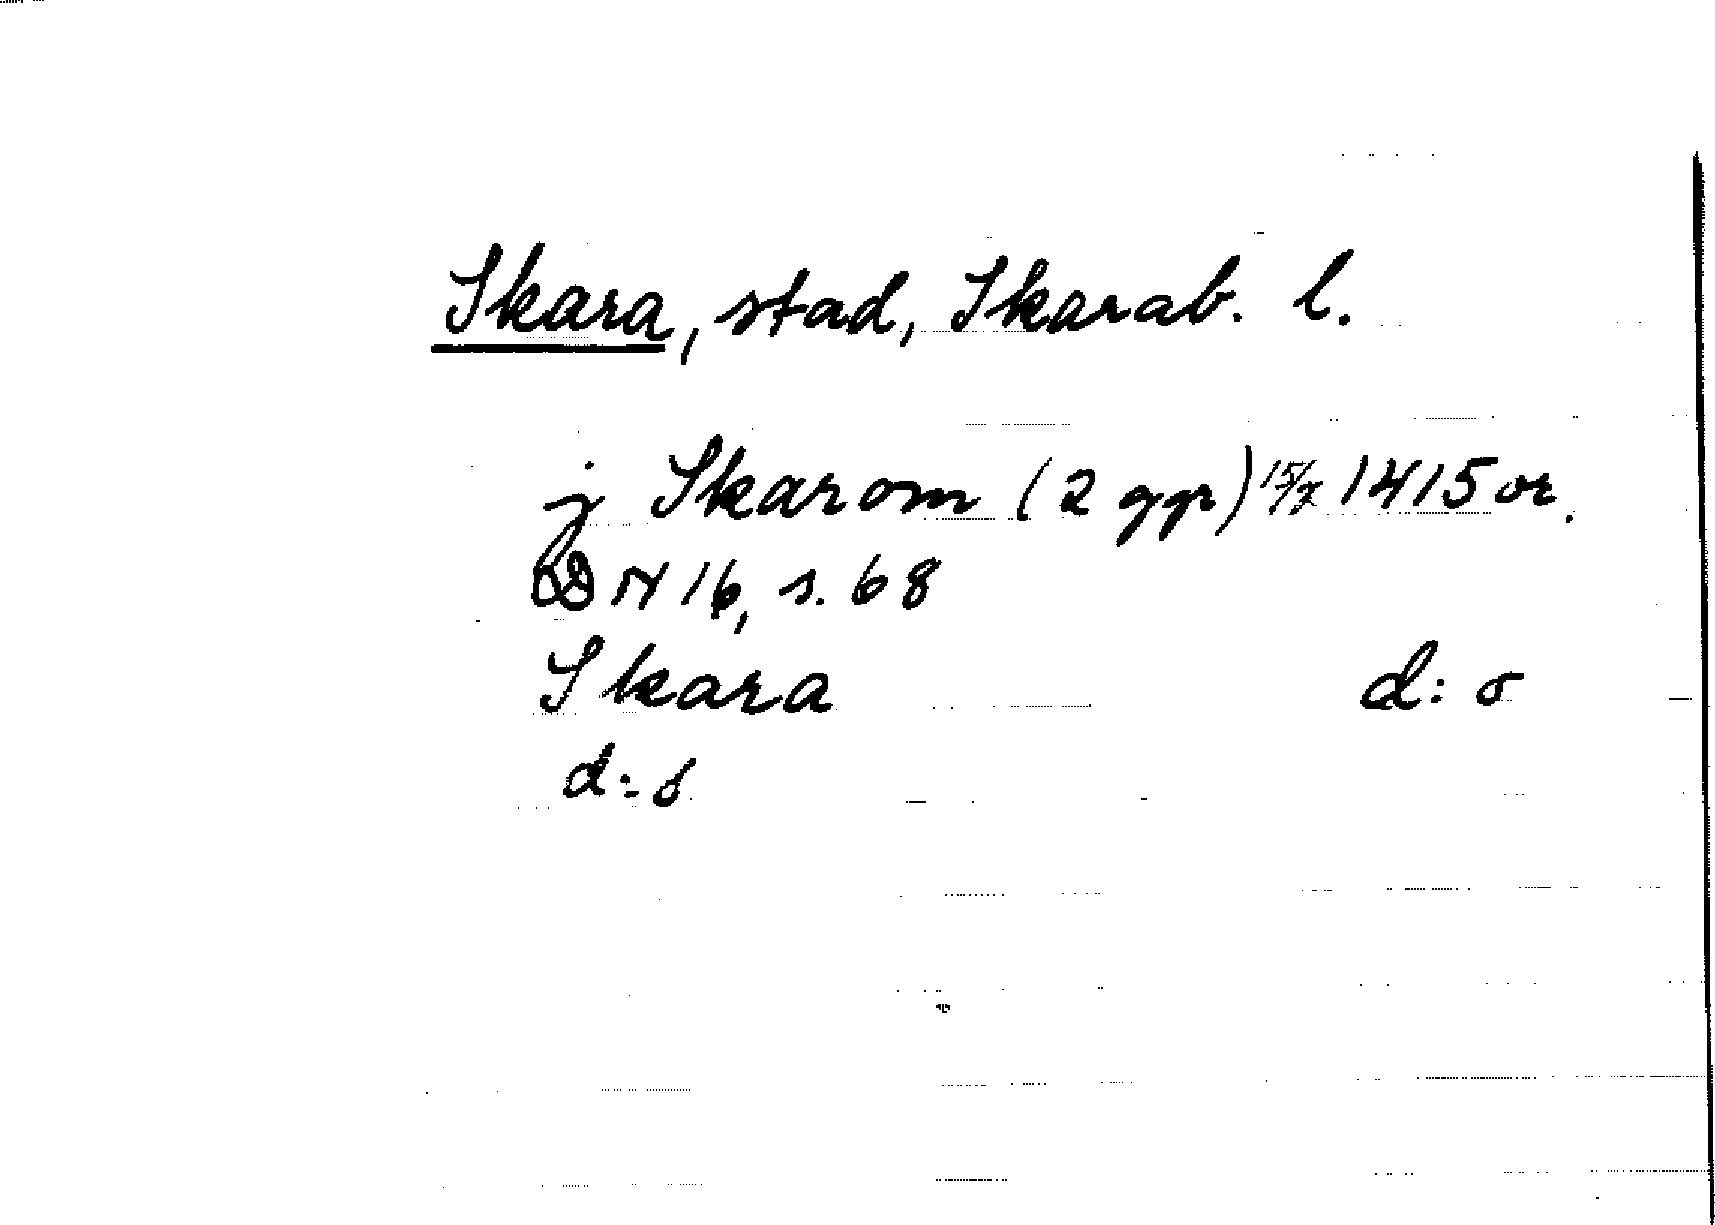 Skara, stad, Skarab. l.
j Skarom (2 ggr) 15/7 1415 or.
DN 16, s. 68
Skara d:o
d:o